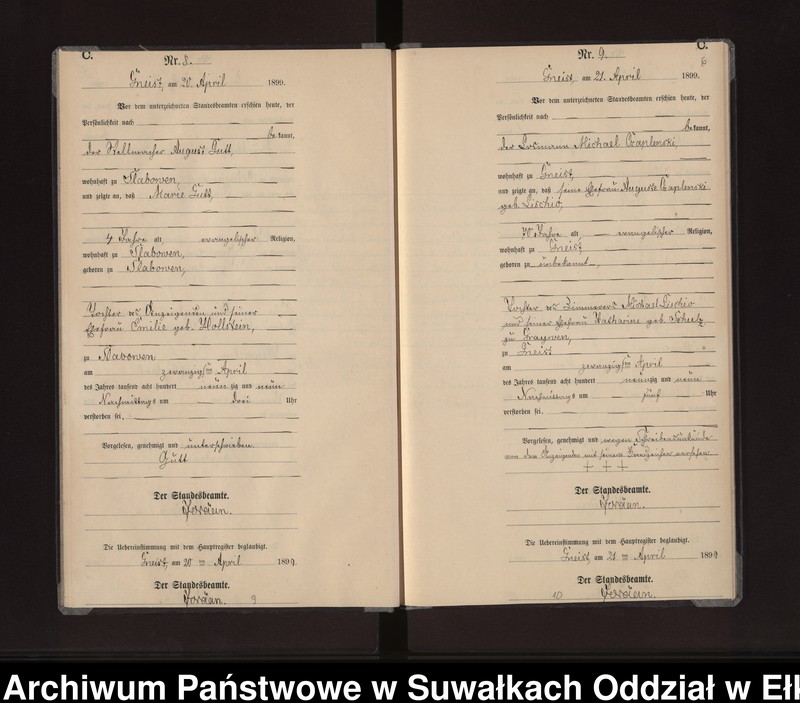 C.
Nr. 8.
Gneist, am 20. April 1899.
Vor dem unterzeichneten Standesbeamten erschien heute, der
Persönlichkeit nach
bekannt,
der Stellmacher August Gutt,
wohnhaft zu Slabowen,
und zeigte an, daß Marie Gutt,
4 Jahre alt, evangelischer Religion,
wohnhaft zu Slabowen,
geboren zu Slabowen,
Tochter des Anzeigenden und seiner
Ehefrau Emilie geb. Hollstein,
zu Slabowen
am zwanzigsten April
des Jahres tausend acht hundert neunzig und neun
Nachmittags um drei Uhr
verstorben sei.
Vorgelesen, genehmigt und unterschrieben.
Gutt
Der Standesbeamte.
Die Uebereinstimmung mit dem Hauptregister beglaubigt.
Gneist, am 20 ten April 1899.
Der Standesbeamte.
9
C.
6
Nr. 9.
Gneist, am 21. April 1899.
Vor dem unterzeichneten Standesbeamten erschien heute, der
Persönlichkeit nach
bekannt,
der Losmann Michael Czaplenski,
wohnhaft zu Gneist,
und zeigte an, daß seine Ehefrau Auguste Czaplenski
geb. Lischio,
70 Jahre alt, evangelischer Religion,
wohnhaft zu Gneist
geboren zu unbekannt,
Tochter des Zimmerers Michael Lischio
und seiner Ehefrau Katharine geb. Schulz
zu
zu Gneist
am zwanzigsten April
des Jahres tausend acht hundert neunzig und neun
Nachmittags um fünf Uhr
verstorben sei.
Vorgelesen, genehmigt und wegen Schreibensunkunde
von dem Anzeigenden mit seinem Handzeichen versehen
+ + +
Der Standesbeamte.
Die Uebereinstimmung mit dem Hauptregister beglaubigt.
Gneist, am 21 ten April 1899
Der Standesbeamte.
10
Archiwum Państwowe w Suwałkach Oddział w Ełk